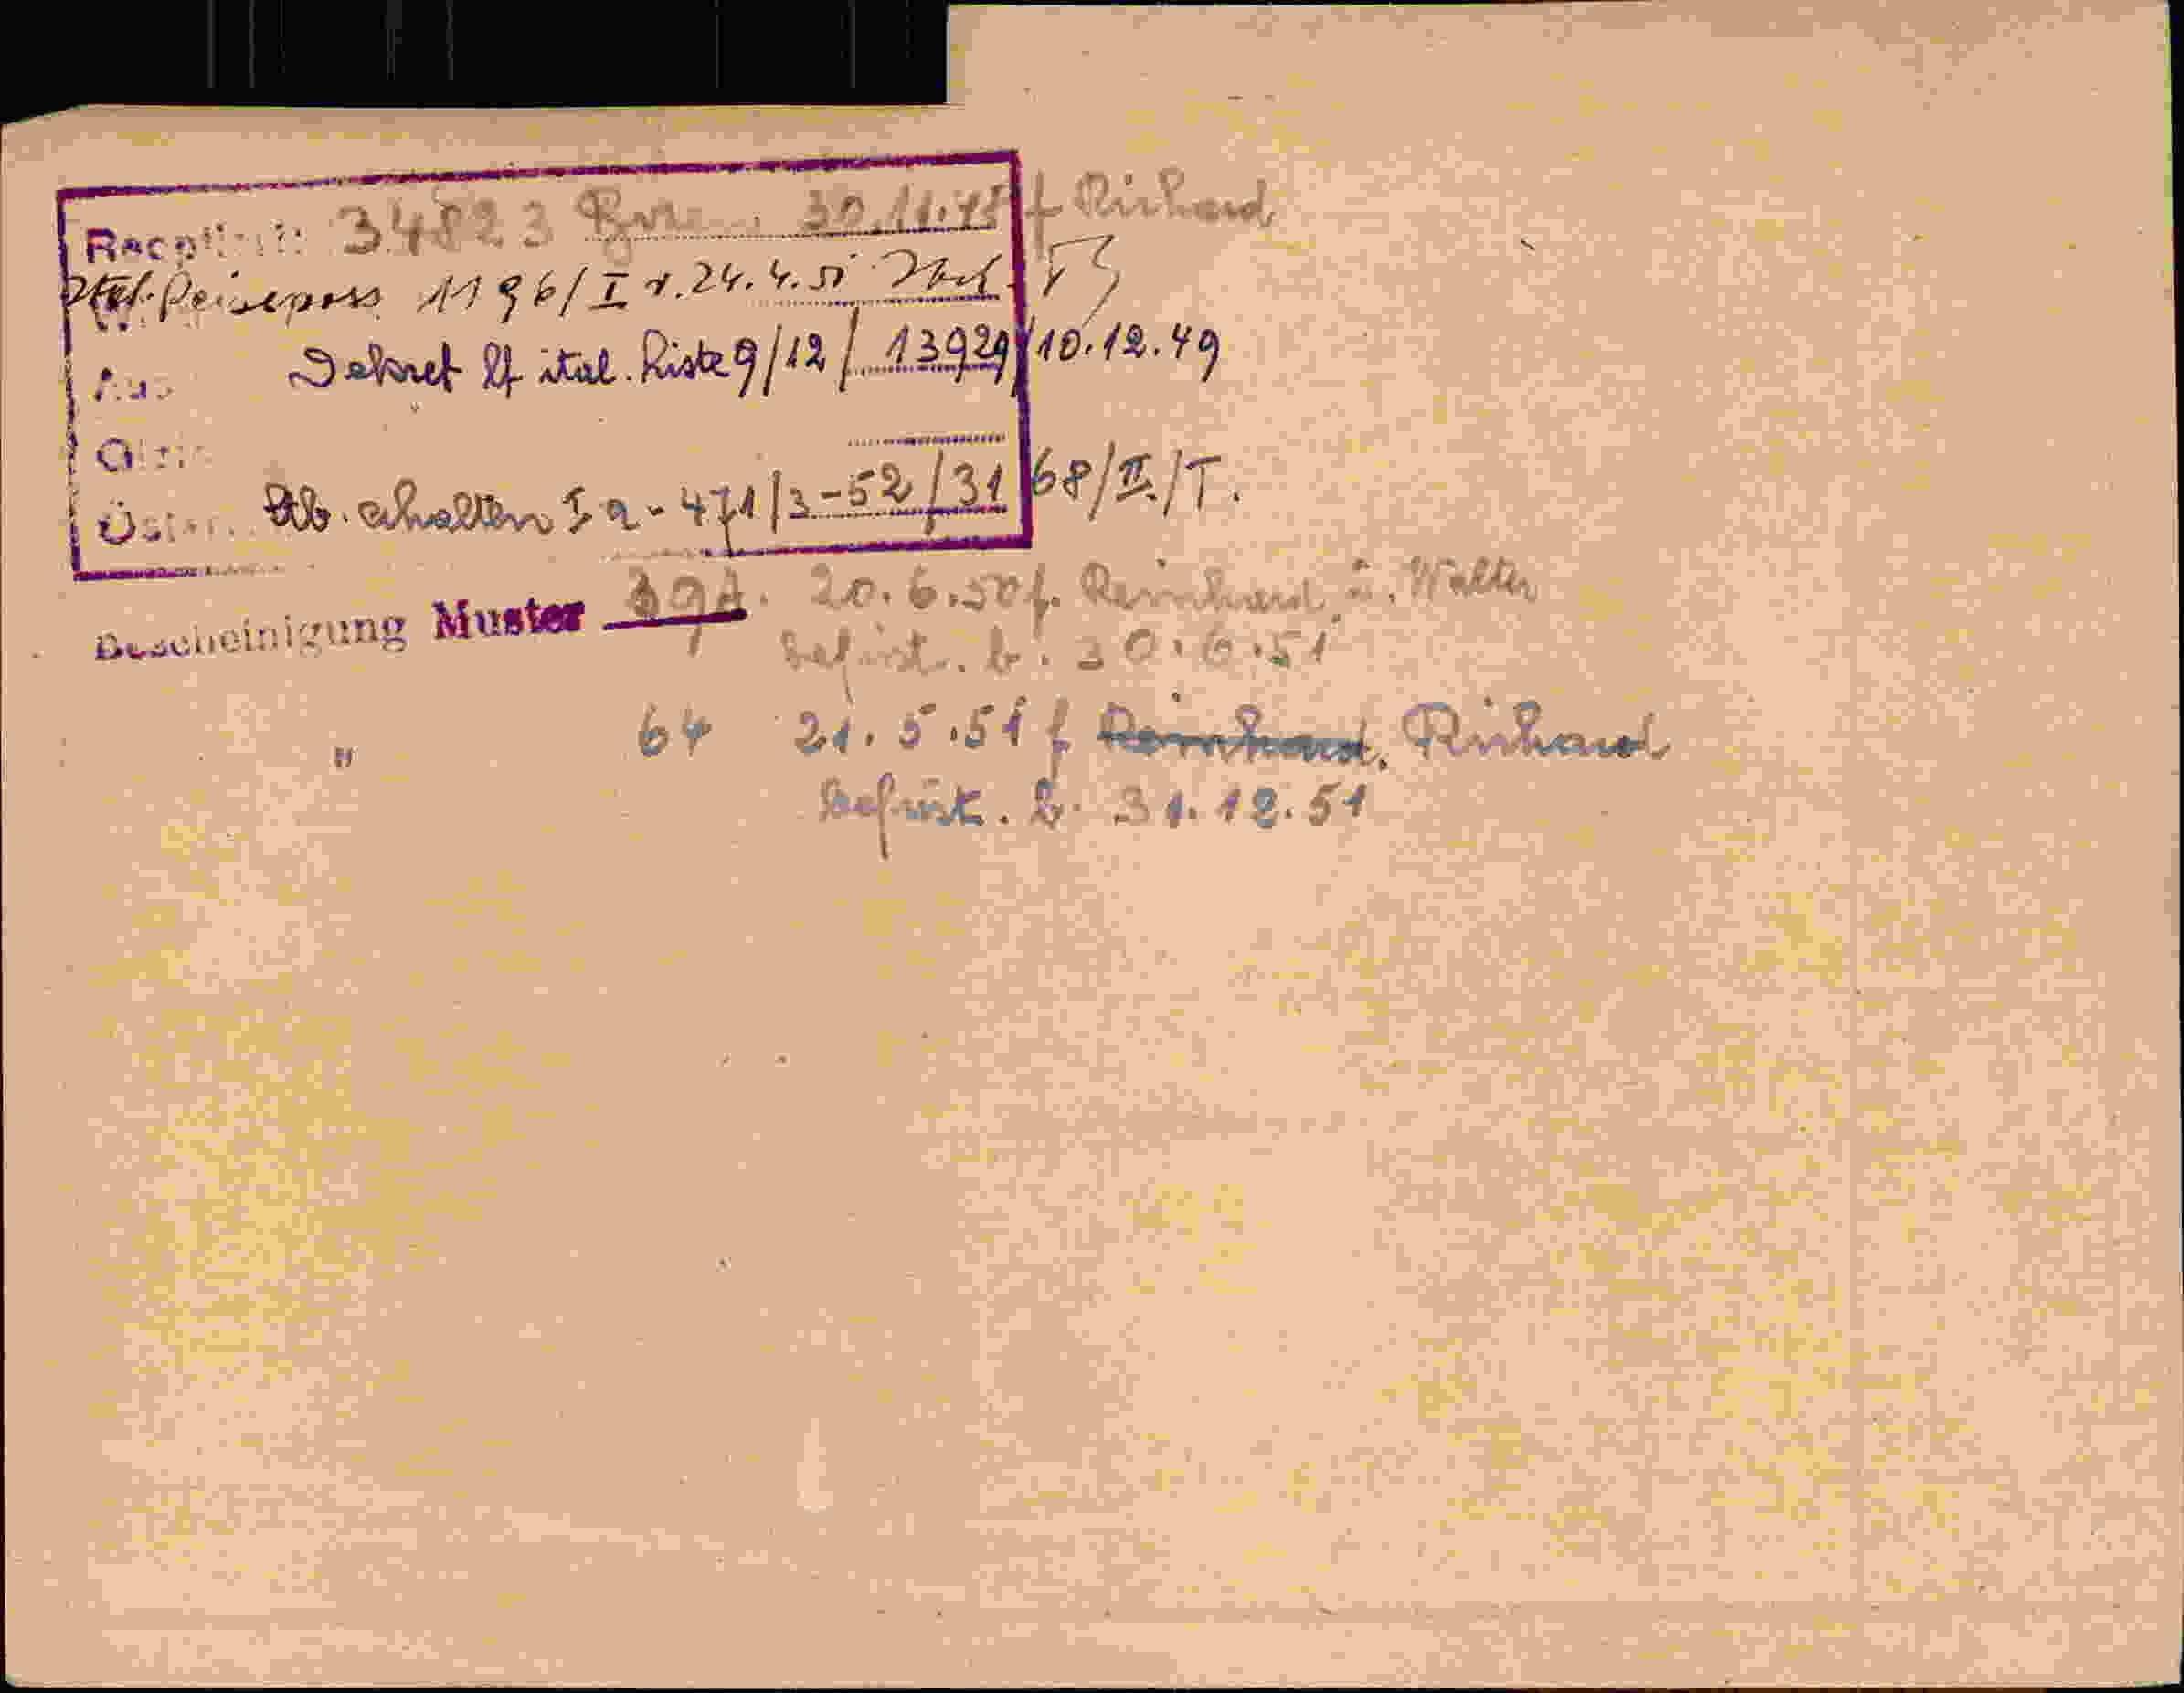 34823 30.11.48 f Richard
Ital. Reisepass 1196/I v. 24.4.51
Aus Dekret lf ital. Liste 9/12/ 13929/10.12.49
Stb. erhalten I a - 471/3-52/31 68/II./T.
Bescheinigung Muster 39A. 20.6.50 f. Reinhard u. Walter
befrist. b. 30.6.51
" 64 21.5.51 f Reinhard. Richard
Befrist. b. 31.12.51